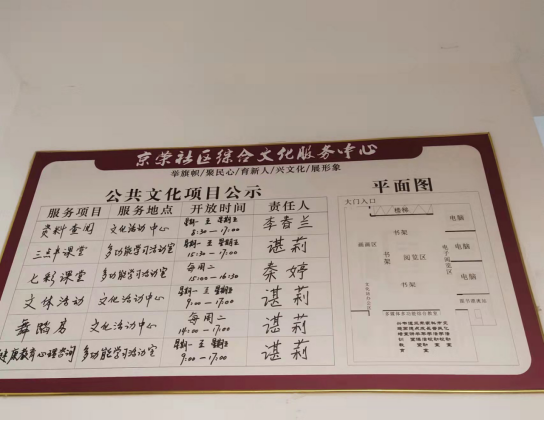 京荣社区综合文化服务中心
举旗帜/聚民心/育新人/兴文化/展形象
公共文化项目公示
服务项目 服务地点 开放时间 责任人
资料查阅 文化活动中心 星期一 至 星期五 8:30-17:00 李春兰
三点半课堂 多功能学习活动室 星期一 至 星期五 15:30-17:00 谌莉
七彩课堂 多功能学习活动室 每周二 15:00-16:30 秦婷
文体活动 文化活动中心 星期一 至 星期五 9:00-17:00 谌莉
舞蹈房 文化活动中心 每周二 14:00-17:00 谌莉
健康教育心理咨询 多功能学习活动室 星期一 至 星期五 9:00-17:00 谌莉
平面图
大门入口
楼梯
书架
电脑
书架
阅览区
电子阅览区
电脑
电脑
书架